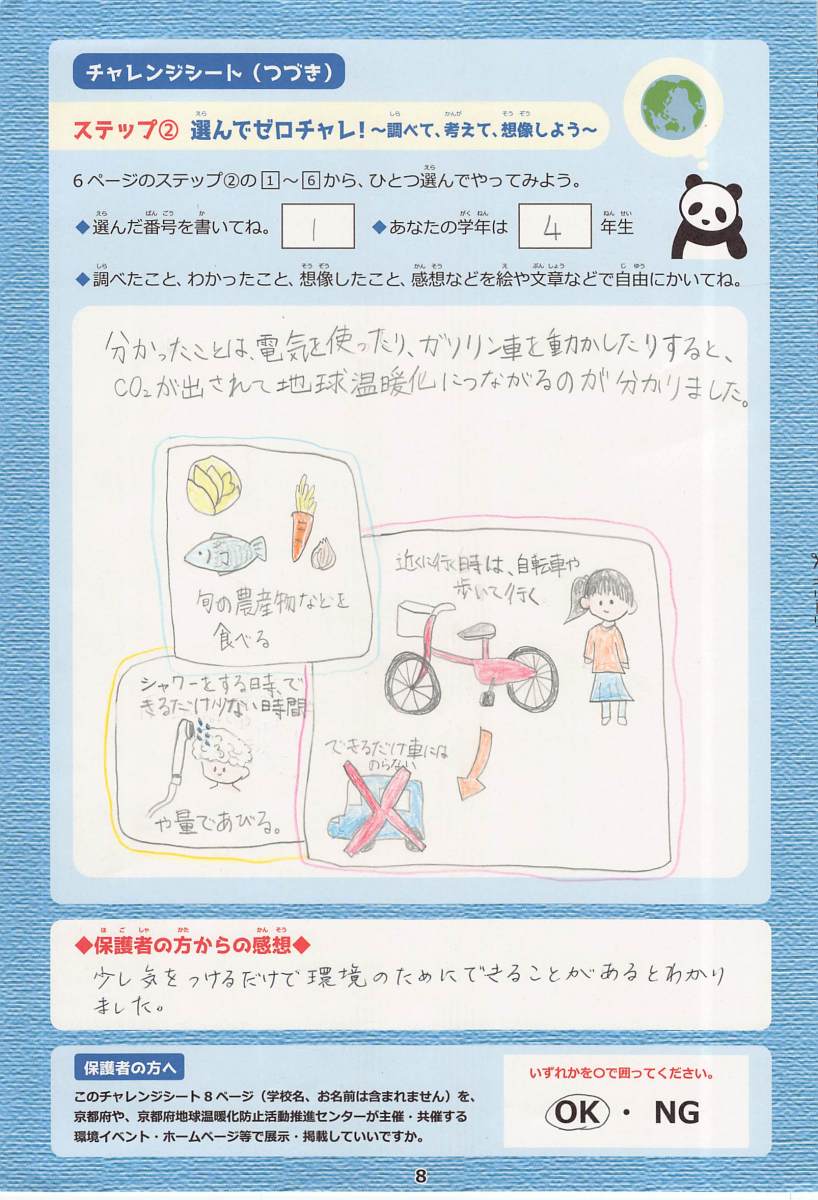 チャレンジシート（つづき）
ステップ② 選んでゼロチャレ！～調べて、考えて、想像しよう～
6ページのステップ②の1～6から、ひとつ選んでやってみよう。
◆選んだ番号を書いてね。 1 ◆あなたの学年は 4 年生
◆調べたこと、わかったこと、想像したこと、感想などを絵や文章などで自由にかいてね。
分かったことは、電気を使ったり、ガソリン車を動かしたりすると、
CO₂が出されて地球温暖化につながるのが分かりました。
旬の農産物などを
食べる
近くに行く時は、自転車や
歩いて行く
シャワーをする時、で
きるだけ少ない時間
や量であびる。
できるだけ車には
のらない
◆保護者の方からの感想◆
少し気をつけるだけで環境のためにできることがあるとわかり
ました。
保護者の方へ
このチャレンジシート8ページ（学校名、お名前は含まれません）を、
京都府や、京都府地球温暖化防止活動推進センターが主催・共催する
環境イベント・ホームページ等で展示・掲載していいですか。
いずれかを○で囲ってください。
OK・NG
8